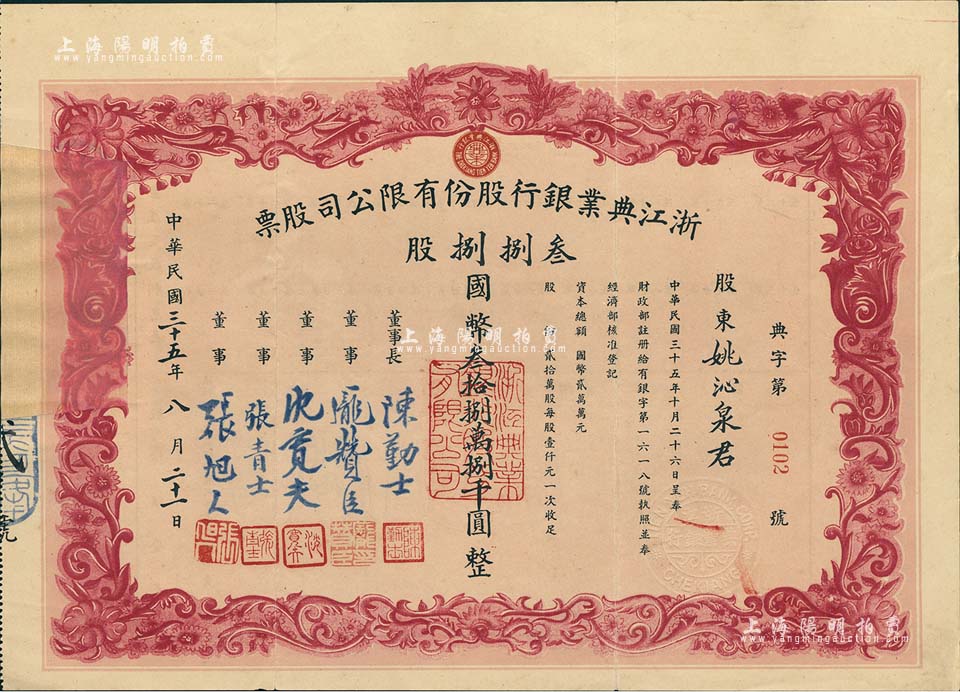 上海陽明拍賣
www.yangmingauction.com
浙江典業銀行股份有限公司股票
叁捌捌股
典字第 0102 號
股東姚沁泉君
中華民國三十五年十月二十六日呈奉
財政部註册給有銀字第一六一八號執照並奉
經濟部核准登記
資本總額 國幣貳萬萬元
股 貳拾萬股每股壹仟元一次收足
國幣叁拾捌萬捌千圓整
浙江典業銀行股份有限公司
董事長 陳勤士
董事 龐贊臣
董事 沈寛夫
董事 張青士
董事 張旭人
中華民國三十五年八月二十一日
上海陽明拍賣
www.yangmingauction.com
上海陽明拍賣
www.yangmingauction.com